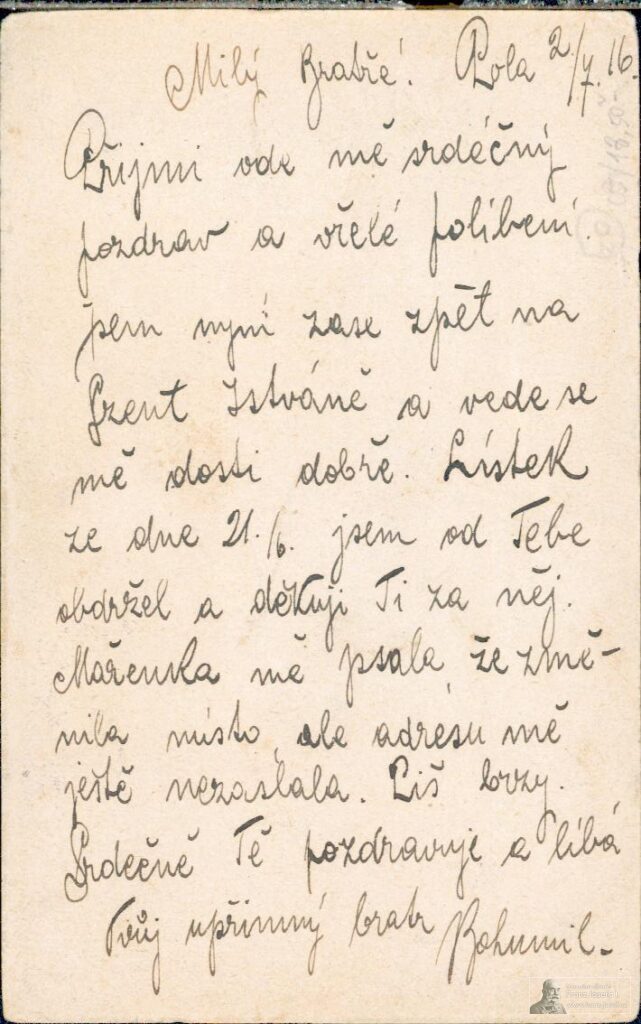 Milý Bratře! Pola 2./7. 16.
Přijmi ode mě srdečný
pozdrav a vřelé políbení.
jsem nyní zase zpět na
Szent Istváně a vede se
mě dosti dobře. Lístek
ze dne 21./6. jsem od Tebe
obdržel a děkuji Ti za něj.
Mařenka mě psala, že změ-
nila místo, ale adresu mě
ještě nezaslala. Piš brzy.
Srdečně Tě pozdravuje a líbá
Tvůj upřímný bratr Bohumil.